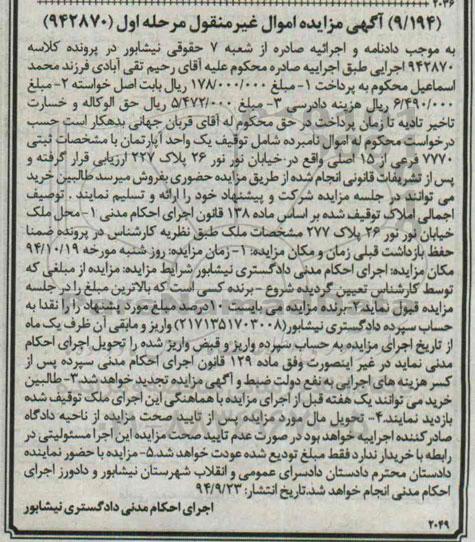 ۲۰۳۶
(۹/۱۹۴) آگهی مزایده اموال غیر منقول مرحله اول (۹۴۲۸۷۰)
به موجب دادنامه و اجرائیه صادره از شعبه ۷ حقوقی نیشابور در پرونده کلاسه
۹۴۲۸۷۰ اجرایی طبق اجراییه صادره محکوم علیه آقای رحیم تقی آبادی فرزند محمد
اسماعیل محکوم به پرداخت ۱- مبلغ ۱۷۸/۰۰۰/۰۰۰ ریال بابت اصل خواسته ۲-مبلغ
۶/۴۹۰/۰۰۰ ریال هزینه دادرسی ۳- مبلغ ۵/۴۷۲/۰۰۰ ریال حق الوکاله و خسارت
تاخیر تادیه تا زمان پرداخت در حق محکوم له آقای قربان جهانی بدهکار است حسب
درخواست محکوم له اموال نامبرده شامل توقیف یک واحد آپارتمان با مشخصات ثبتی
۷۷۷۰ فرعی از ۱۵ اصلی واقع در خیابان نور نور ۲۶ پلاک ۲۲۷ ارزیابی قرار گرفته و
پس از تشریفات قانونی انجام شده از طریق مزایده حضوری بفروش میرسد طالبین خرید
می توانند در جلسه مزایده شرکت و پیشنهاد خود را ارائه و تسلیم نمایند . توصیف
اجمالی املاک توقیف شده بر اساس ماده ۱۳۸ قانون اجرای احکام مدنی ۱-محل ملک
خیابان نور نور ۲۶ پلاک ۲۷۷ مشخصات ملک طبق نظریه کارشناس در پرونده ضمنا
حفظ بازداشت قبلی زمان و مکان مزایده: ۱- زمان مزایده: روز شنبه مورخه ۹۴/۱۰/۱۹
مکان مزایده: اجرای احکام مدنی دادگستری نیشابور شرایط مزایده: مزایده از مبلغی که
توسط کارشناس تعیین گردیده شروع - برنده کسی است که بالاترین مبلغ را در جلسه
مزایده قبول نماید. ۲-برنده مزایده می بایست ۱۰درصد مبلغ مورد پیشنهاد را نقدا به
حساب سپرده دادگستری نیشابور(۲۱۷۱۳۵۱۷۰۳۰۰۸) واریز و مابقی آن ظرف یک ماه
از تاریخ اجرای مزایده به حساب سپرده واریز و قبض واریز شده را تحویل اجرای احکام
مدنی نماید در غیر اینصورت وفق ماده ۱۲۹ قانون اجرای احکام مدنی سپرده پس از
کسر هزینه های اجرایی به نفع دولت ضبط و آگهی مزایده تجدید خواهد شد.۳- طالبین
خرید می توانند یک هفته قبل از اجرای مزایده با هماهنگی این اجرای ملک توقیف شده
بازدید نمایند.۴- تحویل مال مورد مزایده پس از تایید صحت مزایده از ناحیه دادگاه
صادر کننده اجراییه خواهد بود در صورت عدم تایید صحت مزایده این اجرا مسئولیتی در
رابطه با خریدار ندارد فقط مبلغ تودیع شده عودت خواهد شد.۵- مزایده با حضور نماینده
دادستان محترم دادستان دادسرای عمومی و انقلاب شهرستان نیشابور و دادورز اجرای
احکام مدنی انجام خواهد شد.تاریخ انتشار: ۹۴/۹/۲۳
اجرای احکام مدنی دادگستری نیشابور
۲۰۴۹